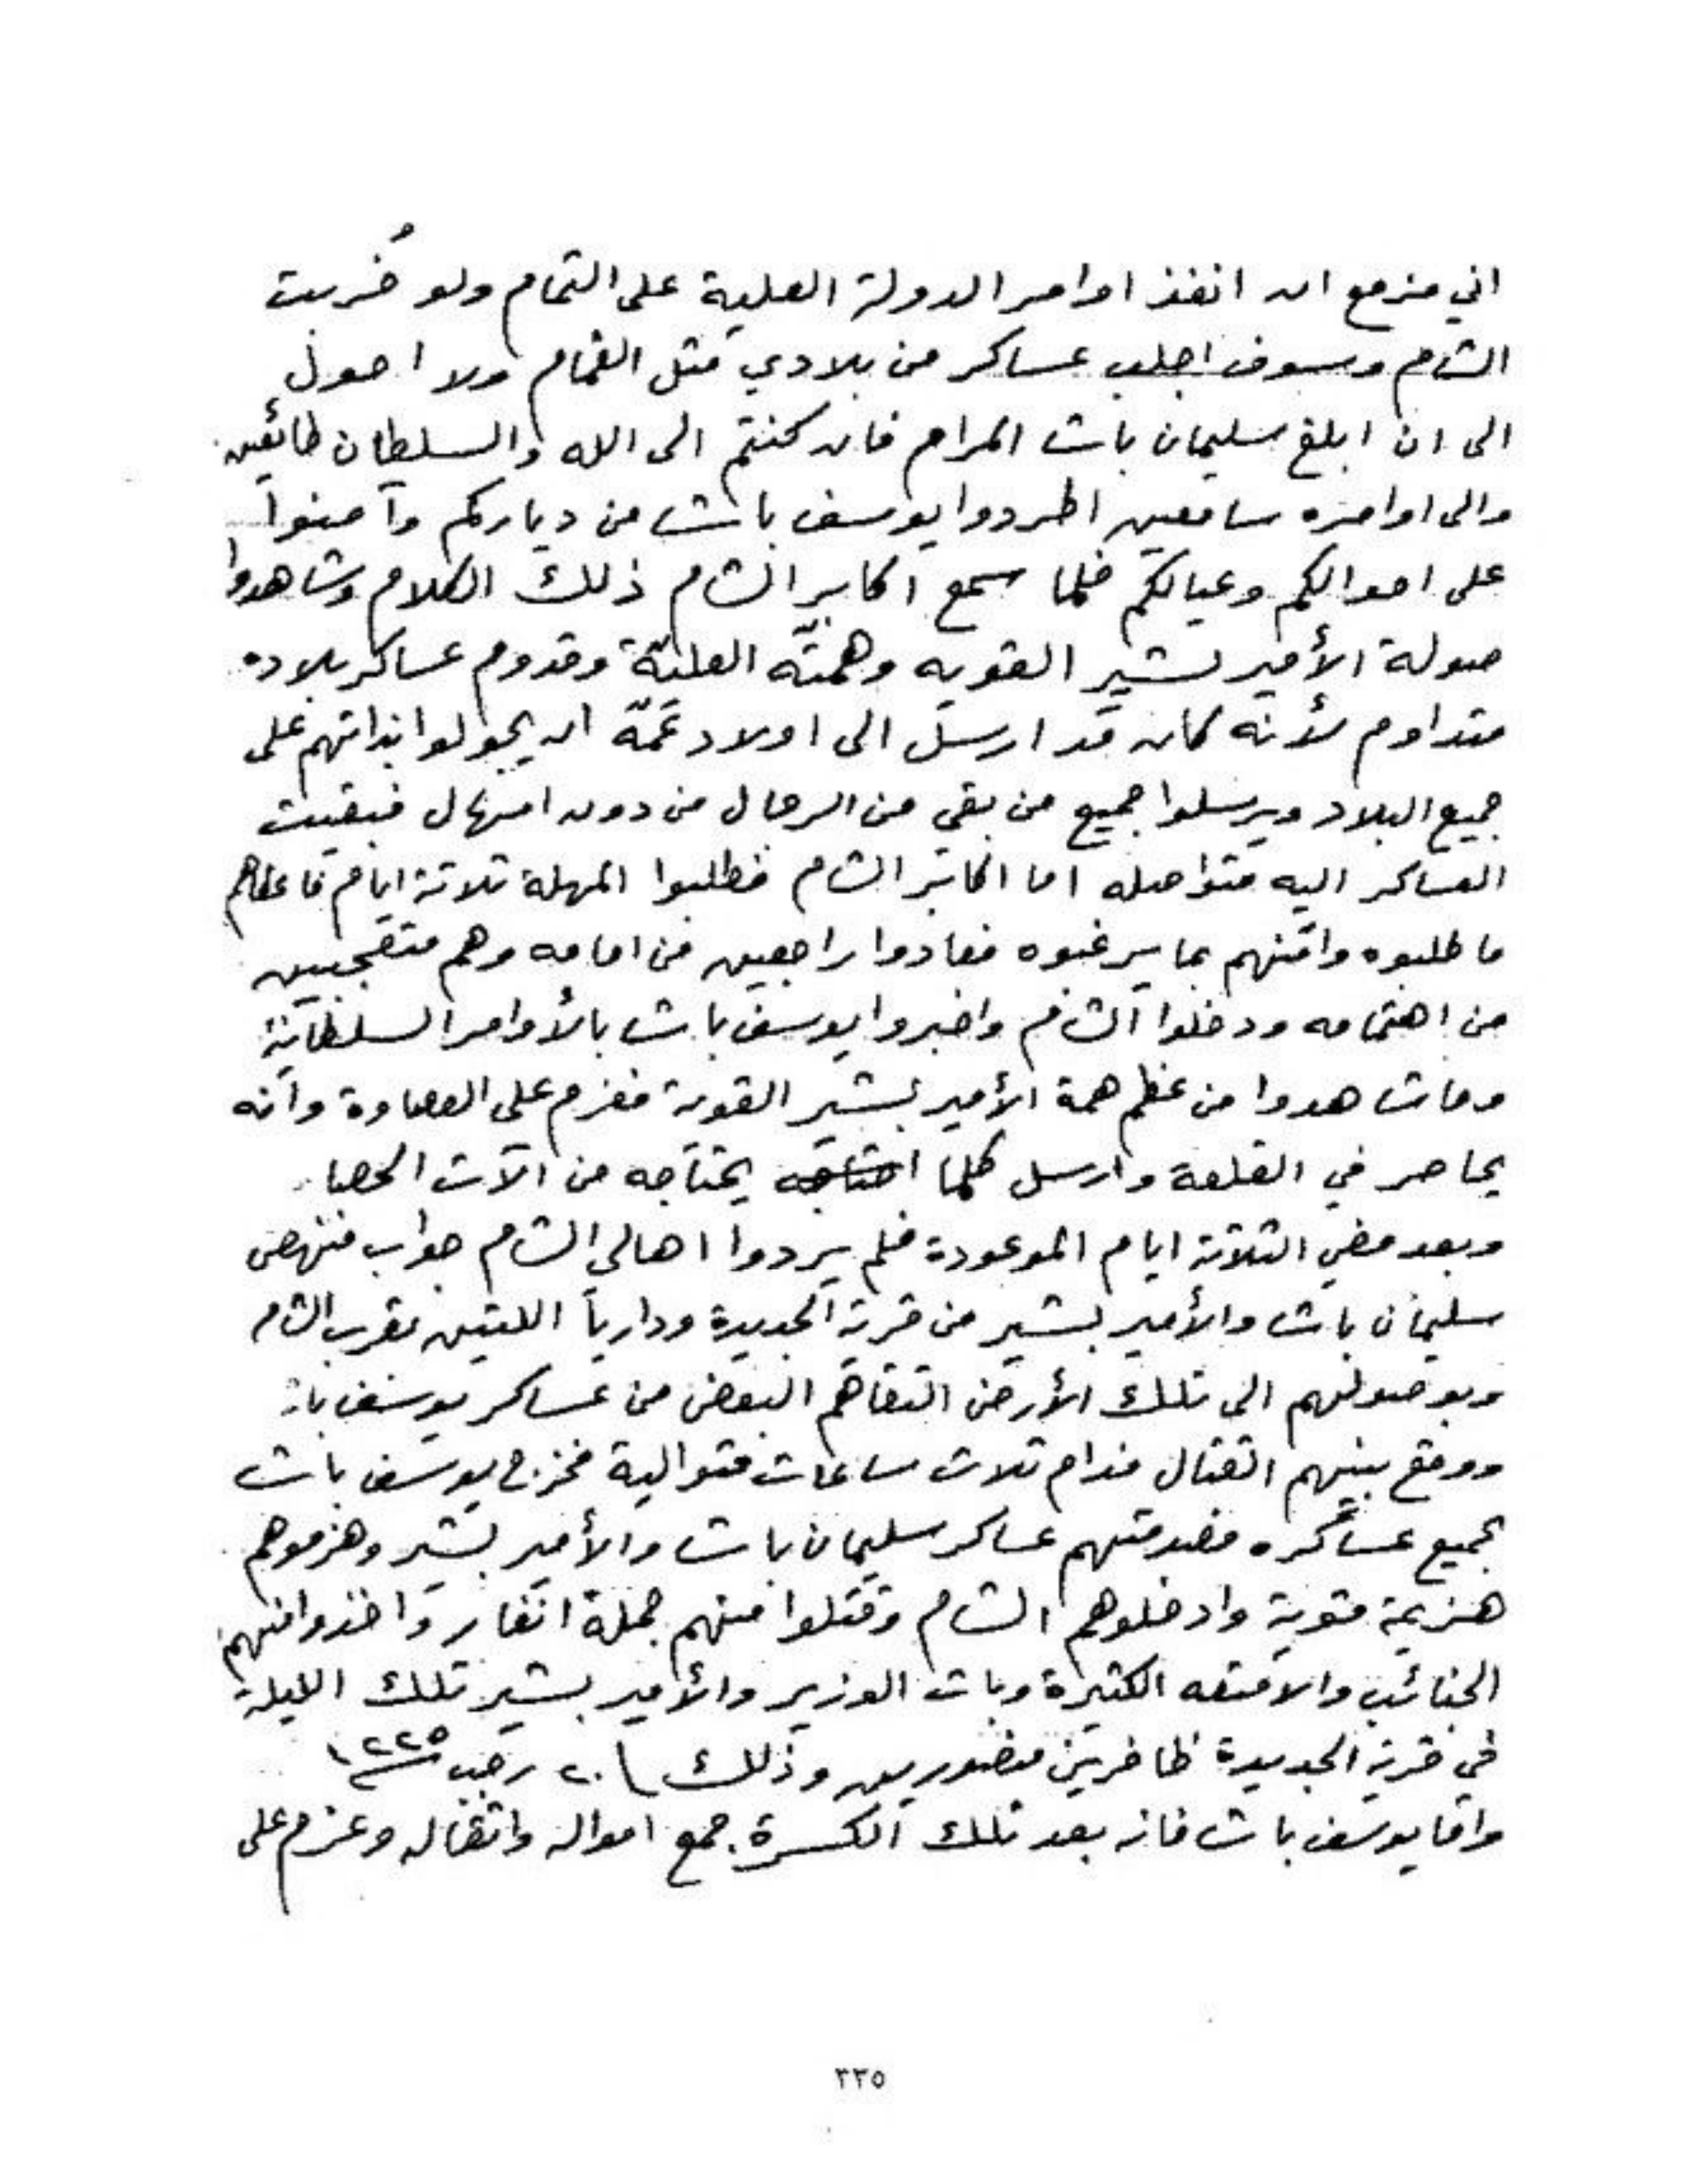 اني مزمع ان انفذ اوامر الدولة العلية على التمام ولو خُربت
الشام وسوف اجلب عساكر من بلادي مثل الغمام ولا احول
الى ان ابلغ سليمان باشا المرام فان كنتم الى الله والسلطان طائعين
والى اوامره سامعين اطردوا يوسف باشا من دياركم وآمنوا
على اموالكم وعيالكم فلما سمع اكابر الشام ذلك الكلام وشاهدوا
صولة الأمير بشير القويه وهمتّه العليّة وقدوم عساكر بلاده
متداوم لأنه كان قد ارسل الى اولاد عَمّه ان يجولوا بذاتهم على
جميع البلاد ويرسلوا جميع من بقي من الرجال من دون امهال فبقيت
العساكر اليه متواصله اما اكابر الشام فطلبوا المهلة ثلاثة ايام فاعطاهم
ما طلبوه وامّنهم بما يرغبوه فعادوا راجعين من امامه وهم متعجبين
من اهتمامه ودخلوا الشام واخبروا يوسف باشا بالأوامر السلطانية
وما شاهدوا من عظم همة الأمير بشير القوية فعزم على العصاوة وانه
يحاصر في القلعة وارسل كلما احتاجه يحتاجه من الآت الحصار
وبعد مضي الثلاثة ايام الموعودة فلم يردوا اهالي الشام جواب فنهض
سليمان باشا والأمير بشير من قرية الجديدة وداريا اللتين بقرب الشام
وبوصولهم الى تلك الأرض التقاهم البعض من عساكر يوسف باشا
ووقع بينهم القتال فدام ثلاث ساعات متوالية فخرج يوسف باشا
بجميع عساكره فصدمتهم عساكر سليمان باشا والأمير بشير وهزموهم
هزيمة قوية وادخلوهم الشام وقتلوا منهم جملة انفار واخذوا منهم
الجنائب والامتعه الكثيرة وبات الوزير والأمير بشير تلك الليلة
في قرية الجديدة ظافرين منصورين وذلك ٢٠ رجب ١٢٢٥
واما يوسف باشا فانه بعد تلك الكسرة جمع امواله واثقاله وعزم على
٣٣٥